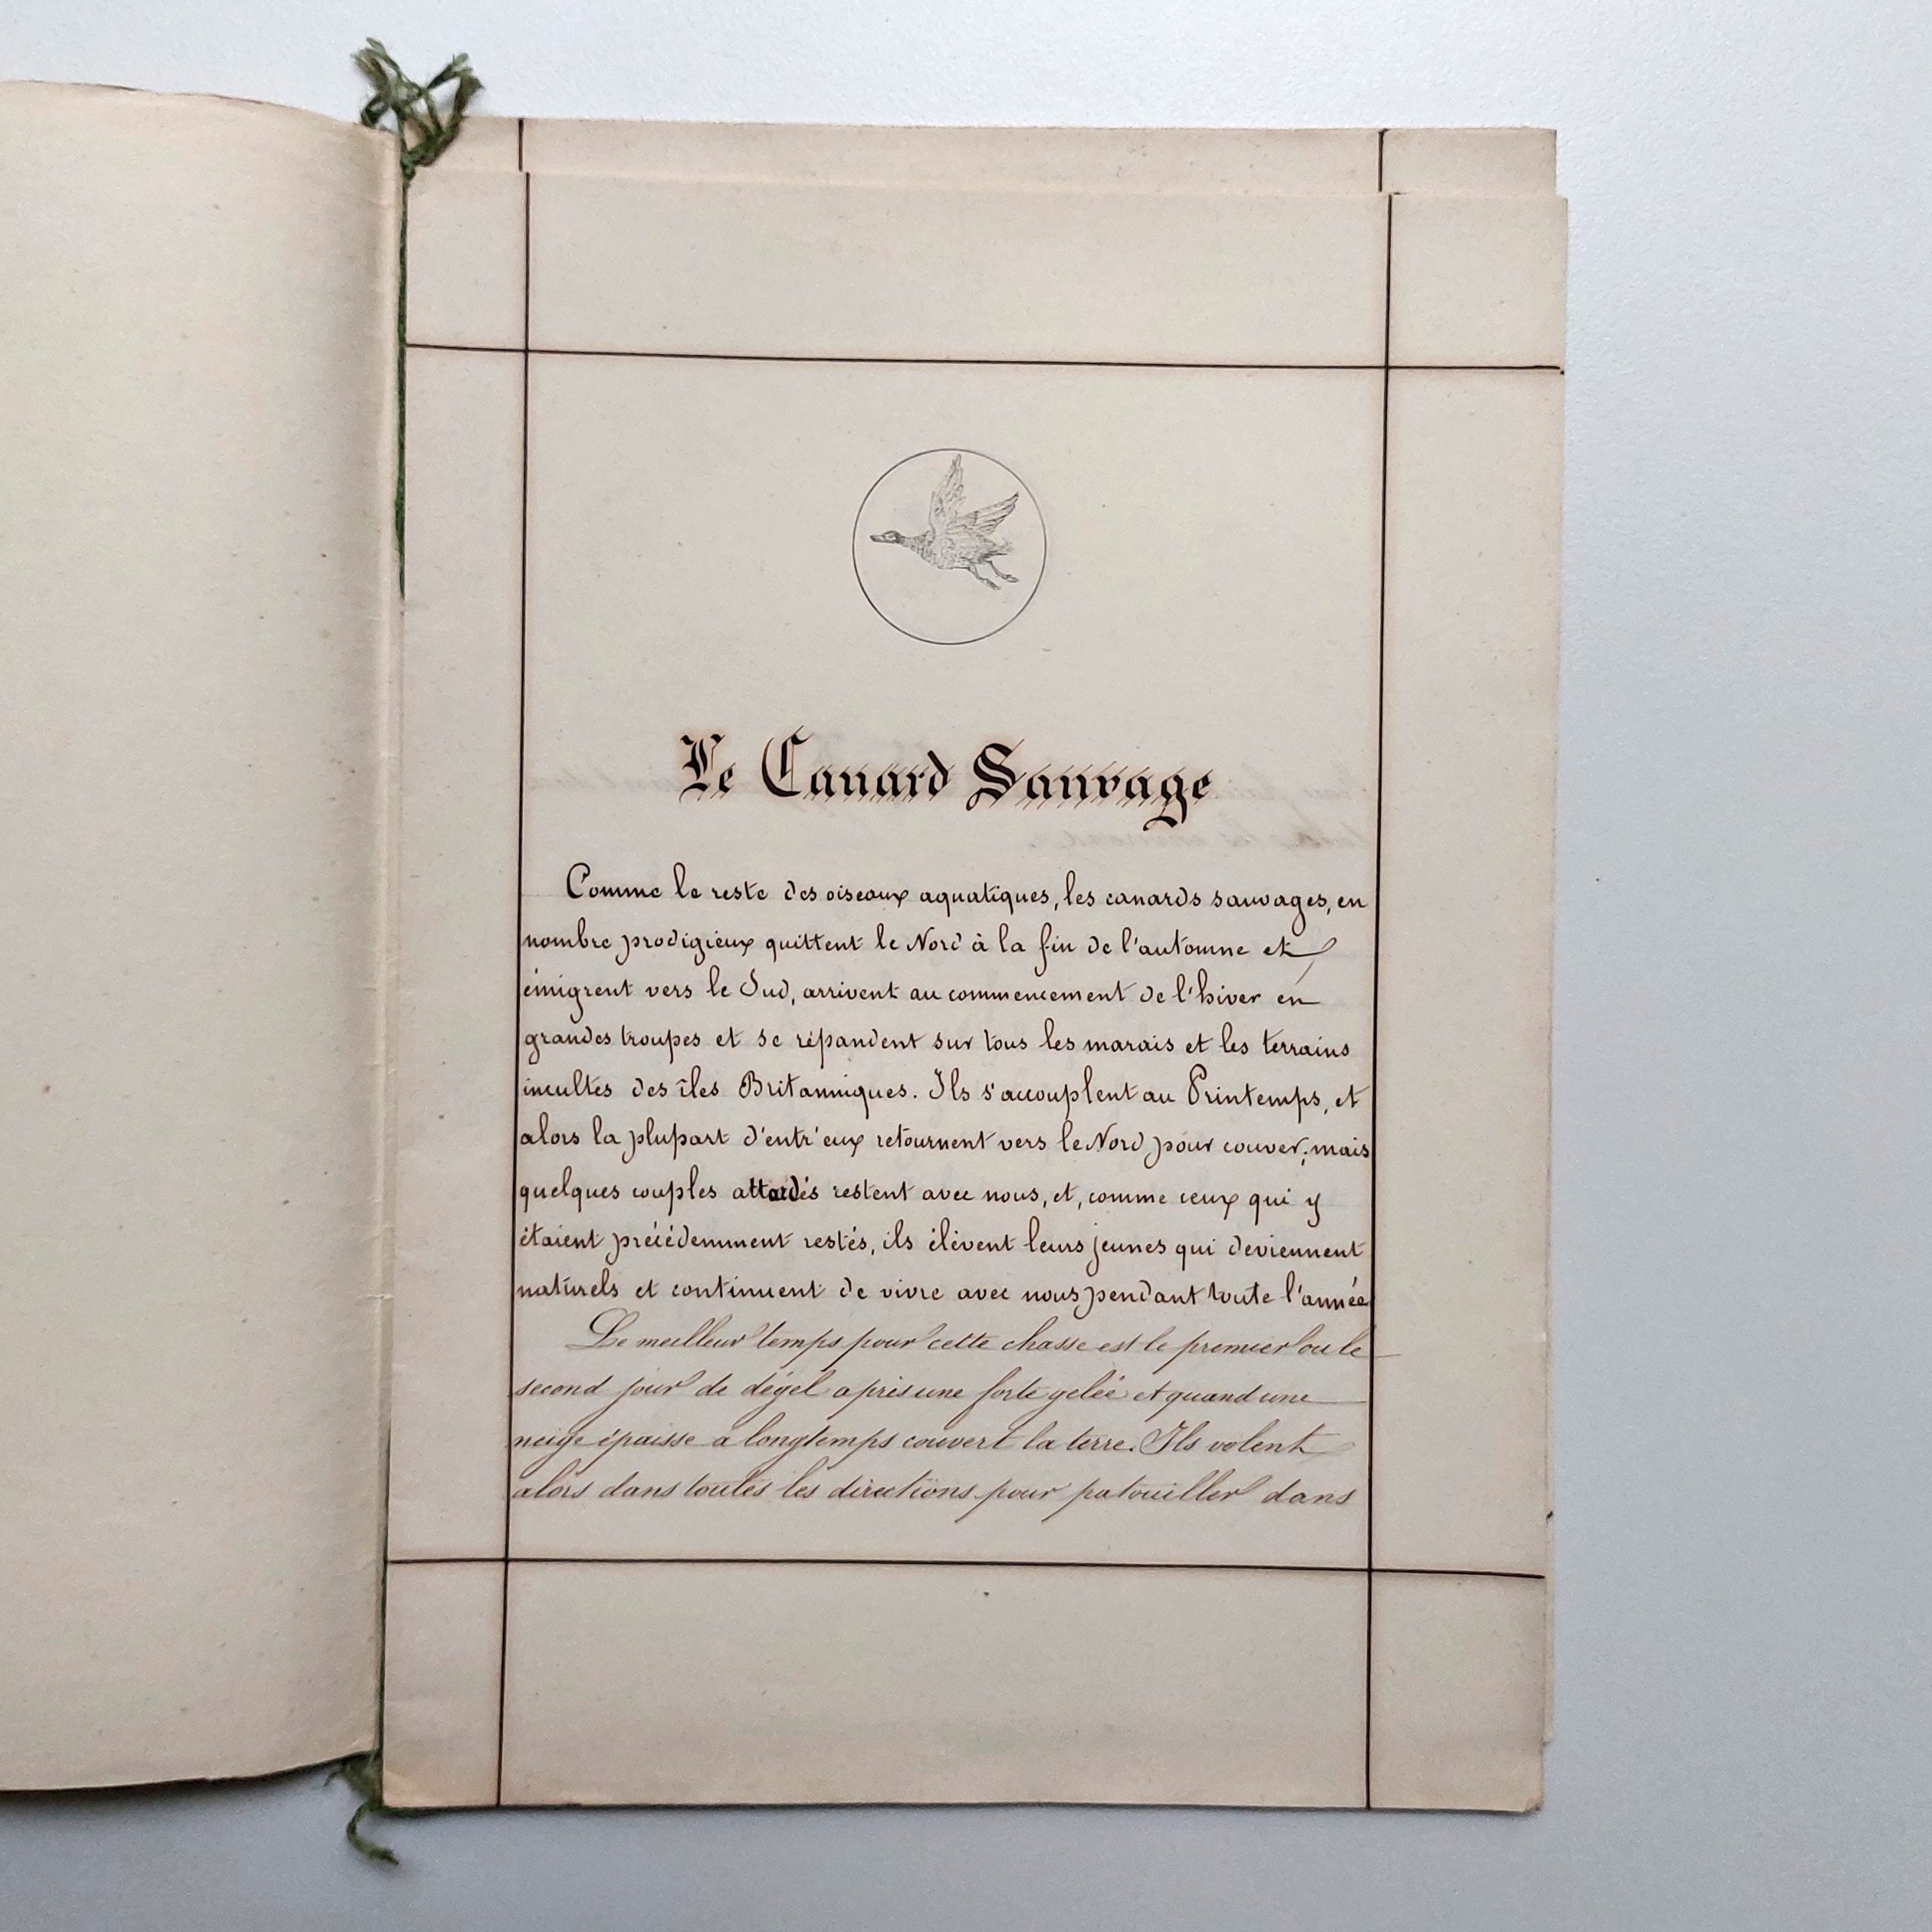 Le Canard Sauvage
Comme le reste des oiseaux aquatiques, les canards sauvages, en
nombre prodigieux quittent le Nord à la fin de l'automne et
émigrent vers le Sud, arrivent au commencement de l'hiver en
grandes troupes et se répandent sur tous les marais et les terrains
incultes des îles Britanniques. Ils s'accouplent au Printemps, et
alors la plupart d'entr'eux retournent vers le Nord pour couver; mais
quelques couples attardés restent avec nous, et, comme ceux qui y
étaient précédemment restés, ils élèvent leurs jeunes qui deviennent
naturels et continuent de vivre avec nous pendant toute l'année
Le meilleur temps pour cette chasse est le premier ou le
second jour de dégel après une forte gelée et quand une
neige épaisse a longtemps couvert la terre. Ils volent
alors dans toutes les directions pour patouiller dans